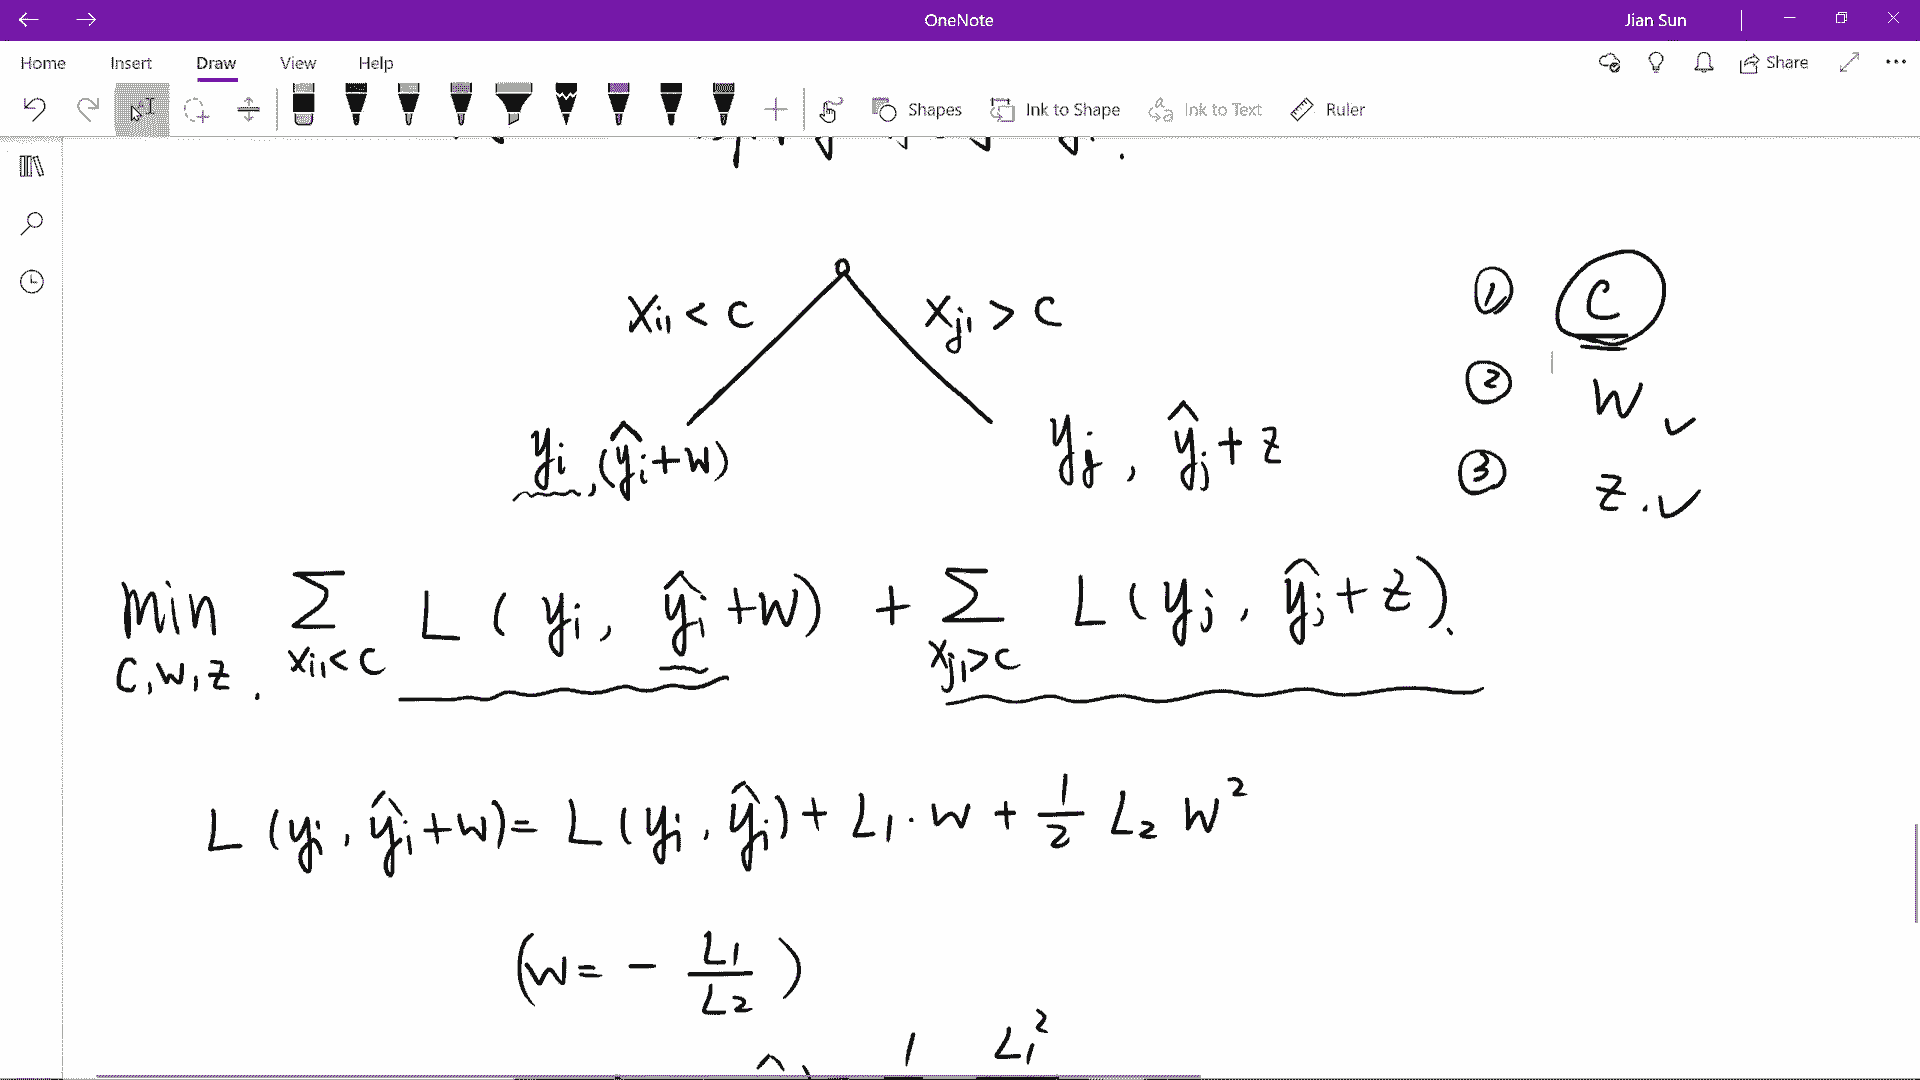 OneNote
Jian Sun
Home Insert Draw View Help
Share
Shapes Ink to Shape Ink to Text Ruler
x_{i1} < c
x_{j1} > c
① c
② w ✓
③ z. ✓
y_i, (ŷ_i + w)
y_j, ŷ_j + z
min_{c, w, z.} Σ_{x_{i1}<c} L(y_i, ŷ_i + w) + Σ_{x_{j1}>c} L(y_j, ŷ_j + z).
L(y_i, ŷ_i + w) = L(y_i, ŷ_i) + L_1 · w + 1/2 L_2 w^2
(w = - L_1/L_2)
1 L_1^2